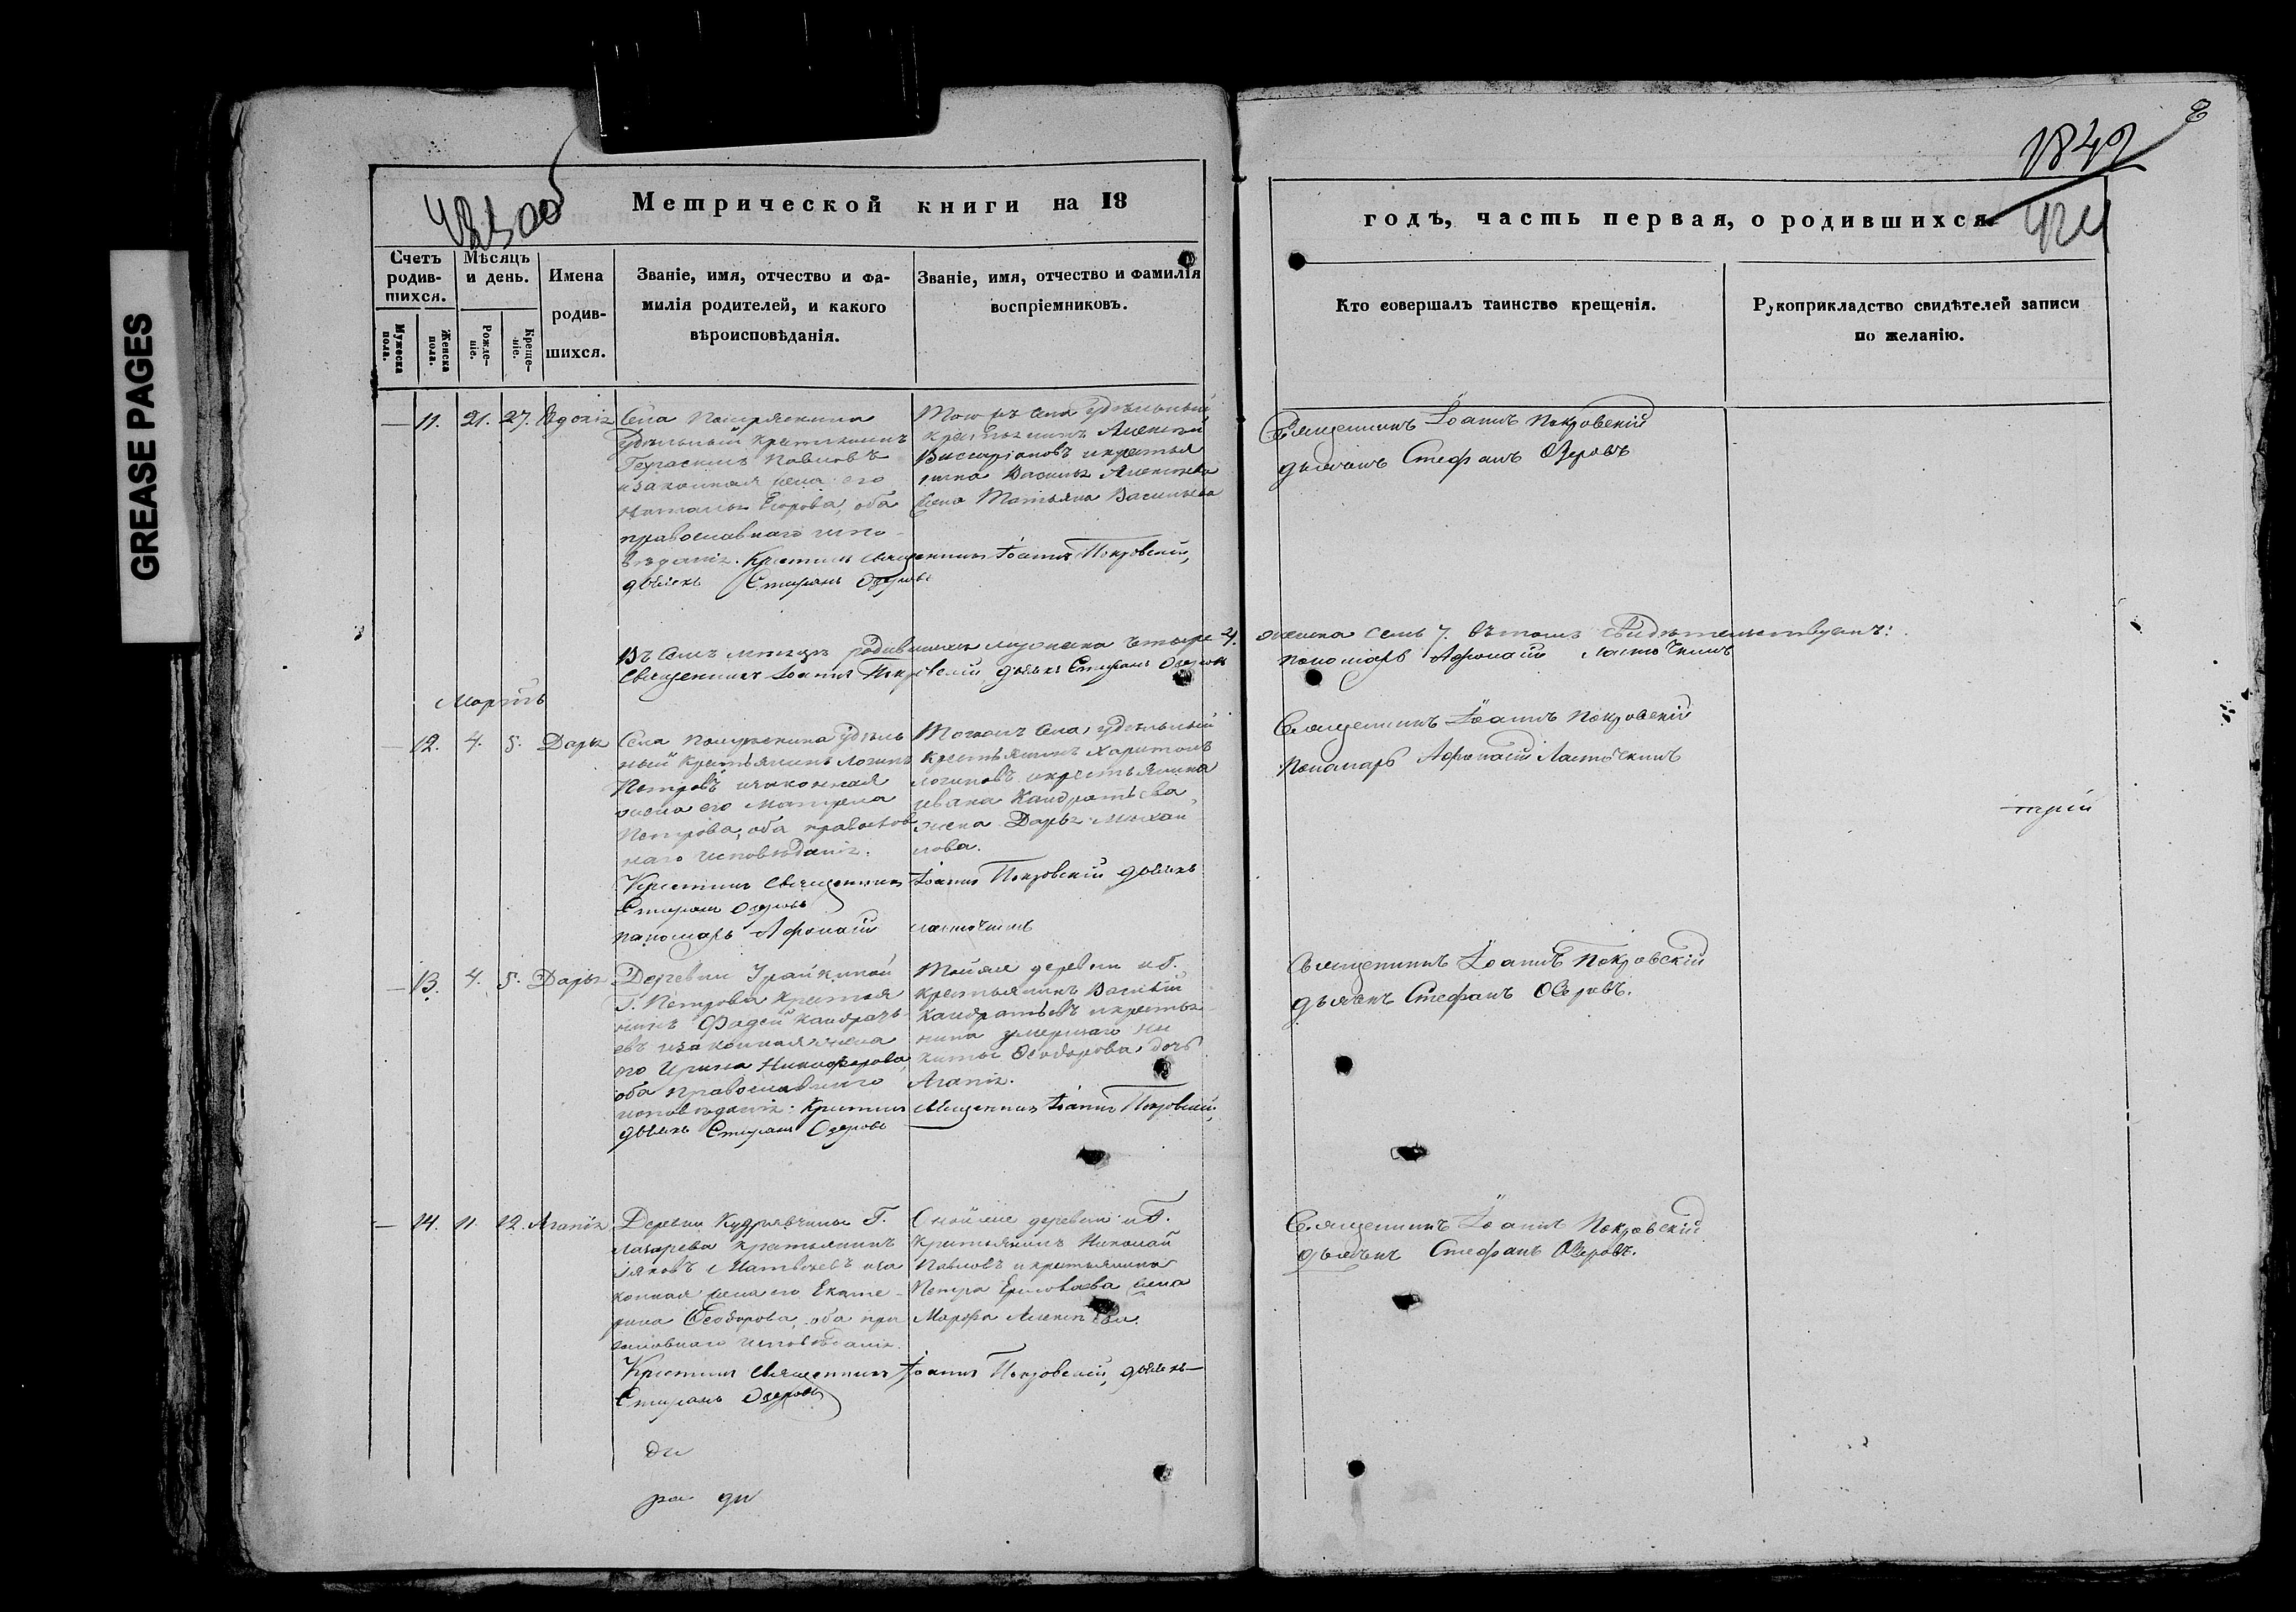 GREASE PAGES
1849
424
Метрической книги на 18
годъ, часть первая, о родившихся.
Счетъ родив-шихся.
Мѣсяцъ и день.
Имена родив-шихся.
Званіе, имя, отчество и фа-
милія родителей, и какого
вѣроисповѣданія.
Званіе, имя, отчество и фамилія
воспріемниковъ.
Кто совершалъ таинство крещенія.
Рукоприкладство свидѣтелей записи
по желанію.
Мужеска пола.
Женска пола.
Рожде-ніе.
Креще-ніе.
11. 21. 27. Евдокія
Села
удѣльный крестьянинъ
Павловъ
и законная жена его
Наталья Егорова, оба
православнаго испо-
вѣданія. Крестилъ священникъ Іоаннъ Покровскій,
дьячекъ Стефанъ Озеровъ
Того жъ села удѣльный
крестьянинъ Алексѣй
Виссаріоновъ и крестья
нина Василья Алексѣева
жена Татьяна Васильева
Священникъ Іоаннъ Покровскій
дьячекъ Стефанъ Озеровъ
Въ семъ мѣсяцѣ родившихся мужеска четыре 4.
женска семь 7. въ томъ свидѣтельствуемъ:
Священникъ Іоаннъ Покровскій, дьячекъ Стефанъ Озеровъ
пономарь Афонасій Ласточкинъ
Мартъ
12. 4. 5. Дарья
Села удѣль
ный крестьянинъ Логинъ
Петровъ и законная
жена его Матрена
Петрова, оба православ
наго исповѣданія.
Крестилъ священникъ Іоаннъ Покровскій дьячекъ
Стефанъ Озеровъ
пономарь Афонасій Ласточкинъ
Тогожъ села, удѣльный
крестьянинъ Харитонъ
Логиновъ и крестьянина
Ивана Кандратьева
жена Дарья Михаи
лова.
Священникъ Іоаннъ Покровскій
Пономарь Афонасій Ласточкинъ
13. 4. 5. Дарья
Деревни Урайкиной
Г. Петрова крестья
нинъ Фадей Кандрать
евъ и законная жена
его Ирина Никифорова,
оба православнаго
исповѣданія: Крестилъ священникъ Іоаннъ Покровскій,
дьячекъ Стефанъ Озеровъ
Тойже деревни и Г.
крестьянинъ Василій
Кандратьевъ и крестья
нина умершаго Ни
киты Ѳеодорова дочь
Агапія.
Священникъ Іоаннъ Покровскій
дьячекъ Стефанъ Озеровъ.
14. 11. 12. Агапія
Деревни Кудрявчины Г.
Лазарева крестьянинъ
Іяковъ Матвѣевъ и за
конная жена его Екате-
рина Ѳеодорова, оба пра
вославнаго исповѣданія.
Крестилъ священникъ Іоаннъ Покровскій, дьячекъ
Стефанъ Озеровъ
Онойже деревни и Г.
крестьянинъ Николай
Павловъ и крестьянина
Петра Ермолаева жена
Марфа Алексѣева.
Священникъ Іоаннъ Покровскій
дьячекъ Стефанъ Озеровъ.
ди
ра ди